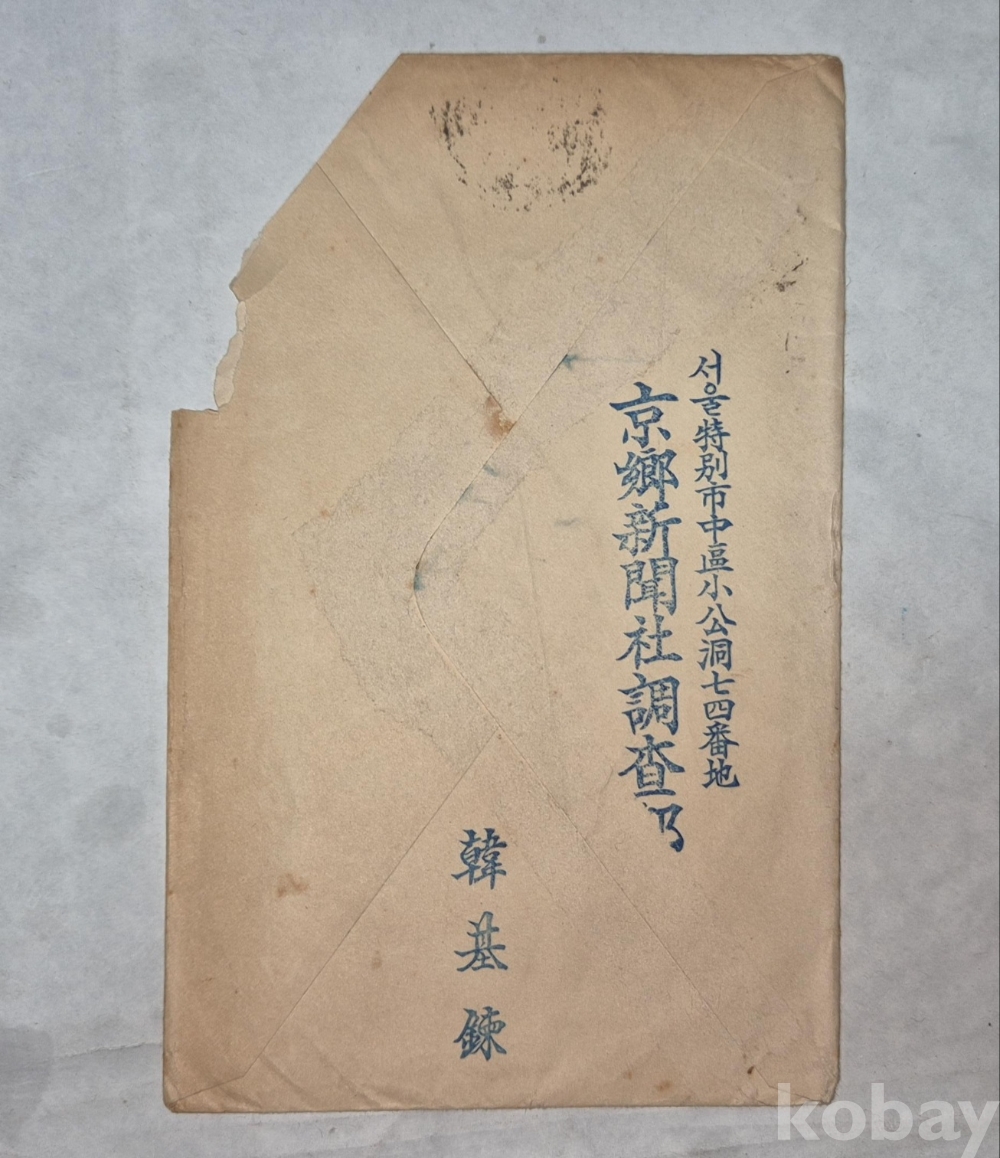 서울特別市中區小公洞七四番地
京鄕新聞社調査部
韓基鍊
kobay